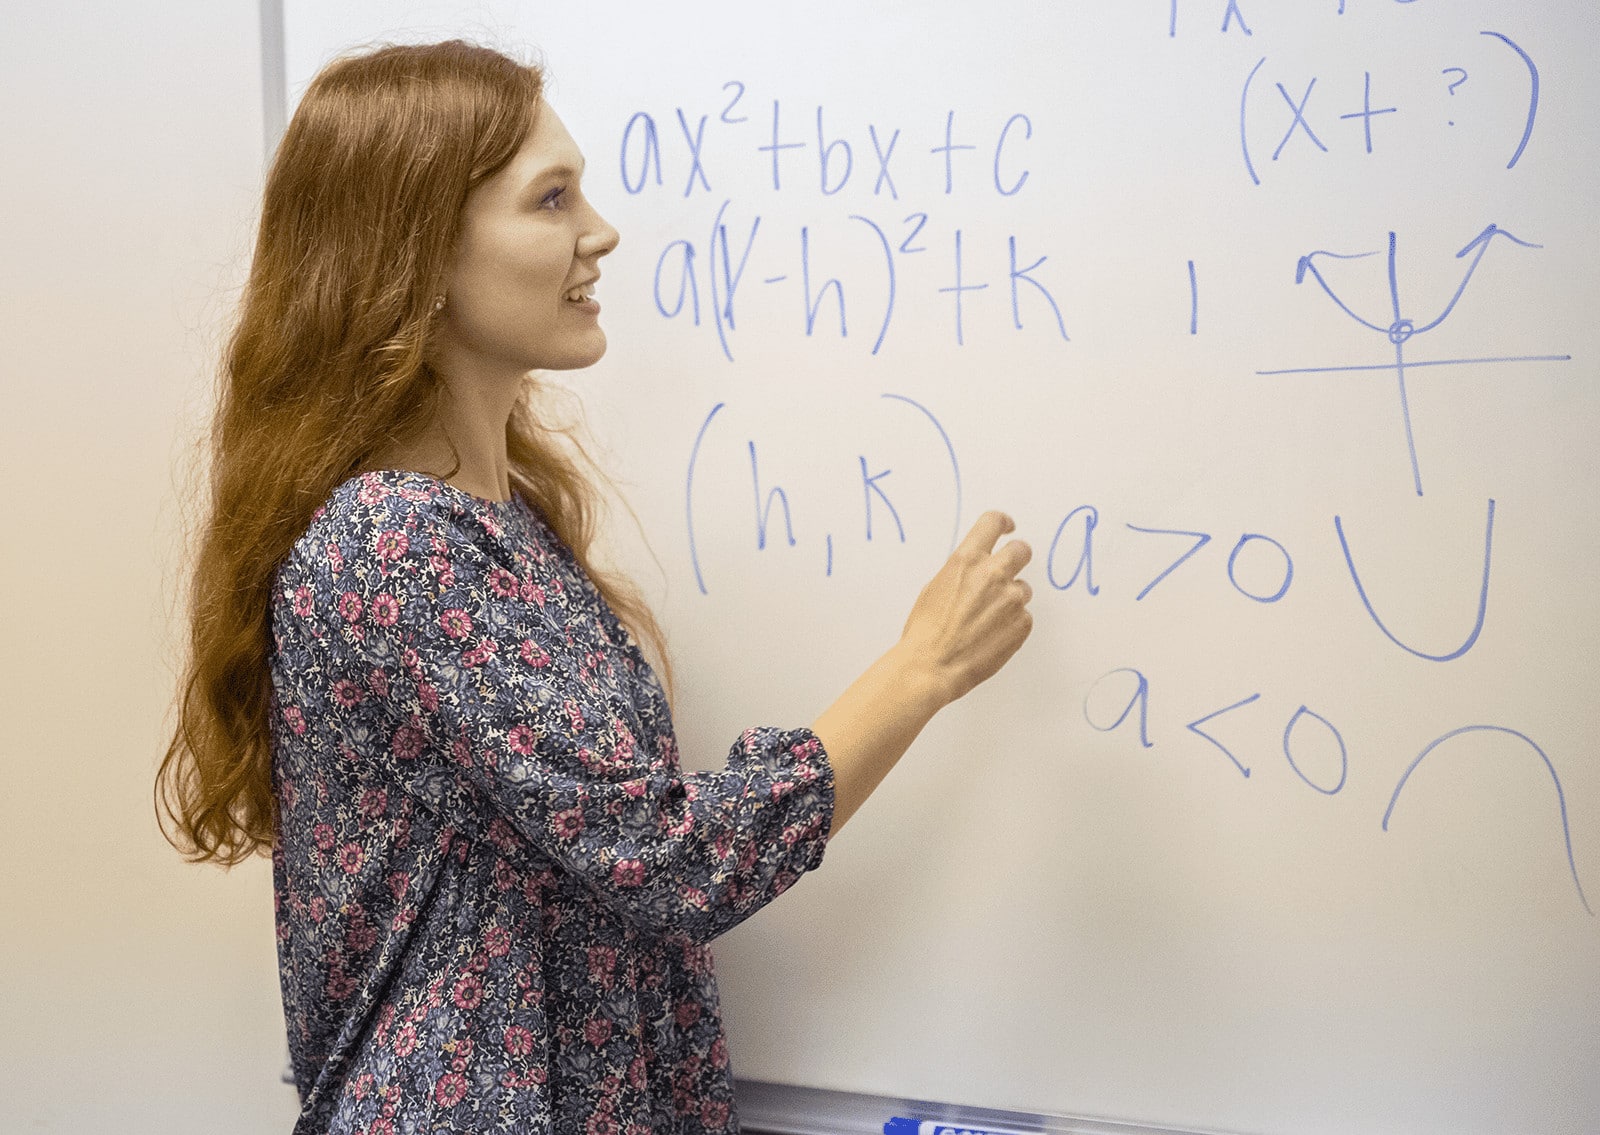 ax²+bx+c
a(x-h)²+k
(h,k)
(x+ ?)
a>0
a<0